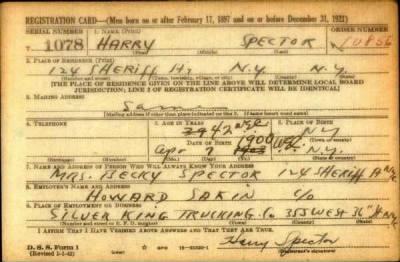 REGISTRATION CARD—(Men born on or after February 17, 1897 and on or before December 31, 1921)
SERIAL NUMBER 1. NAME (Print) ORDER NUMBER
T 1078 HARRY SPECTOR 10856
(First) (Middle) (Last)
2. PLACE OF RESIDENCE (Print)
124 SHERIFF St. N.Y. N.Y.
(Number and street) (Town, township, village, or city) (County) (State)
[THE PLACE OF RESIDENCE GIVEN ON THE LINE ABOVE WILL DETERMINE LOCAL BOARD
JURISDICTION; LINE 2 OF REGISTRATION CERTIFICATE WILL BE IDENTICAL]
3. MAILING ADDRESS
Same
[Mailing address if other than place indicated on line 2. If same insert word same]
4. TELEPHONE 5. AGE IN YEARS 6. PLACE OF BIRTH
42 N.Y.
DATE OF BIRTH (Town or county)
Apr 7 1900
(Exchange) (Number) (Mo.) (Day) (Yr.) (State or country)
7. NAME AND ADDRESS OF PERSON WHO WILL ALWAYS KNOW YOUR ADDRESS
MRS. BECKY SPECTOR 124 SHERIFF
8. EMPLOYER'S NAME AND ADDRESS
HOWARD SAKIN c/o
9. PLACE OF EMPLOYMENT OR BUSINESS
SILVER KING TRUCKING Co 353 WEST 36" St NYC
(Number and street or R. F. D. number) (Town) (County) (State)
I AFFIRM THAT I HAVE VERIFIED ABOVE ANSWERS AND THAT THEY ARE TRUE.
D. S. S. Form 1
(Revised 1-1-42) (over)
Harry Spector
(Registrant's signature)